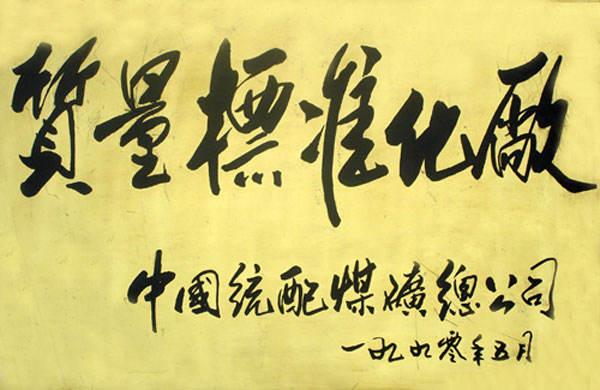 質量標准化廠
中國統配煤礦總公司
一九九零年五月